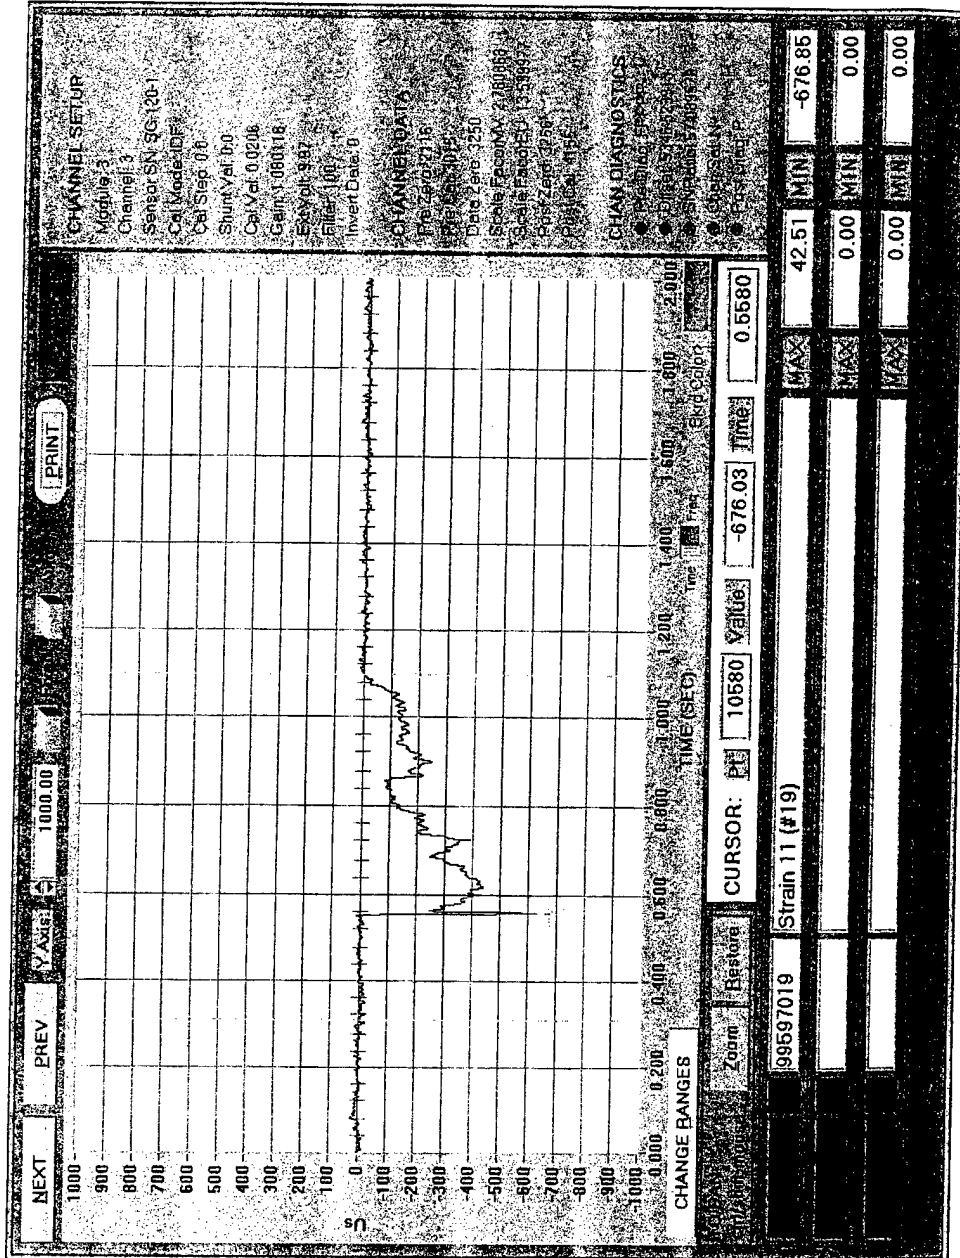 NEXT
PREV
Y Axis:
1000.00
PRINT
1000
900
800
700
600
500
400
300
200
100
0
-100
-200
-300
-400
-500
-600
-700
-800
-900
-1000
Us
0.000
0.200
0.400
0.600
0.800
1.000
1.200
1.400
1.600
1.800
2.000
TIME (SEC)
Time
Freq
Bkrd Color?
CHANGE RANGES
Zoom
Restore
CURSOR:
Pt:
10580
Value:
-676.03
Time:
0.5580
99597019
Strain 11 (#19)
MAX
42.51
MIN
-676.85
MAX
0.00
MIN
0.00
MAX
0.00
MIN
0.00
CHANNEL SETUP
Module: 3
Channel: 3
Sensor SN: SG-120-1
Cal Mode: IDEF
Cal Step: 0.0
Shunt Val: 0.0
Cal Val: 0.0206
Exc Volt: 9.97
Invert Data: 0
CHANNEL DATA
Data Zero: -3250
CHAN DIAGNOSTICS